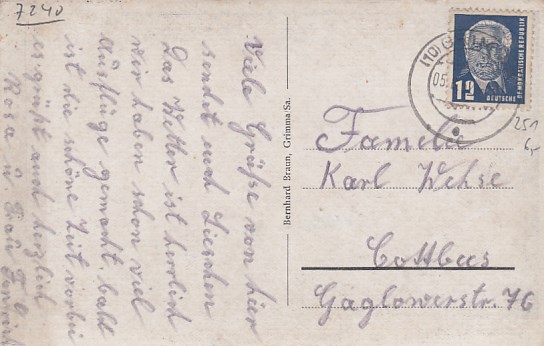 7240
Viele Grüße von hier
sendet euch Lieschen
Das Wetter ist herrlich
wir haben schon viel
Ausflüge gemacht. bald
ist die schöne Zeit vorbei
es grüßt auch herzlich
Rosa u. Frau
Bernhard Braun, Grimma/Sa.
(10)
05.
12
DEUTSCHE
DEMOKRATISCHE REPUBLIK
251
6,-
Familie
Karl Wehse
Cottbus
Gaglowerstr. 76